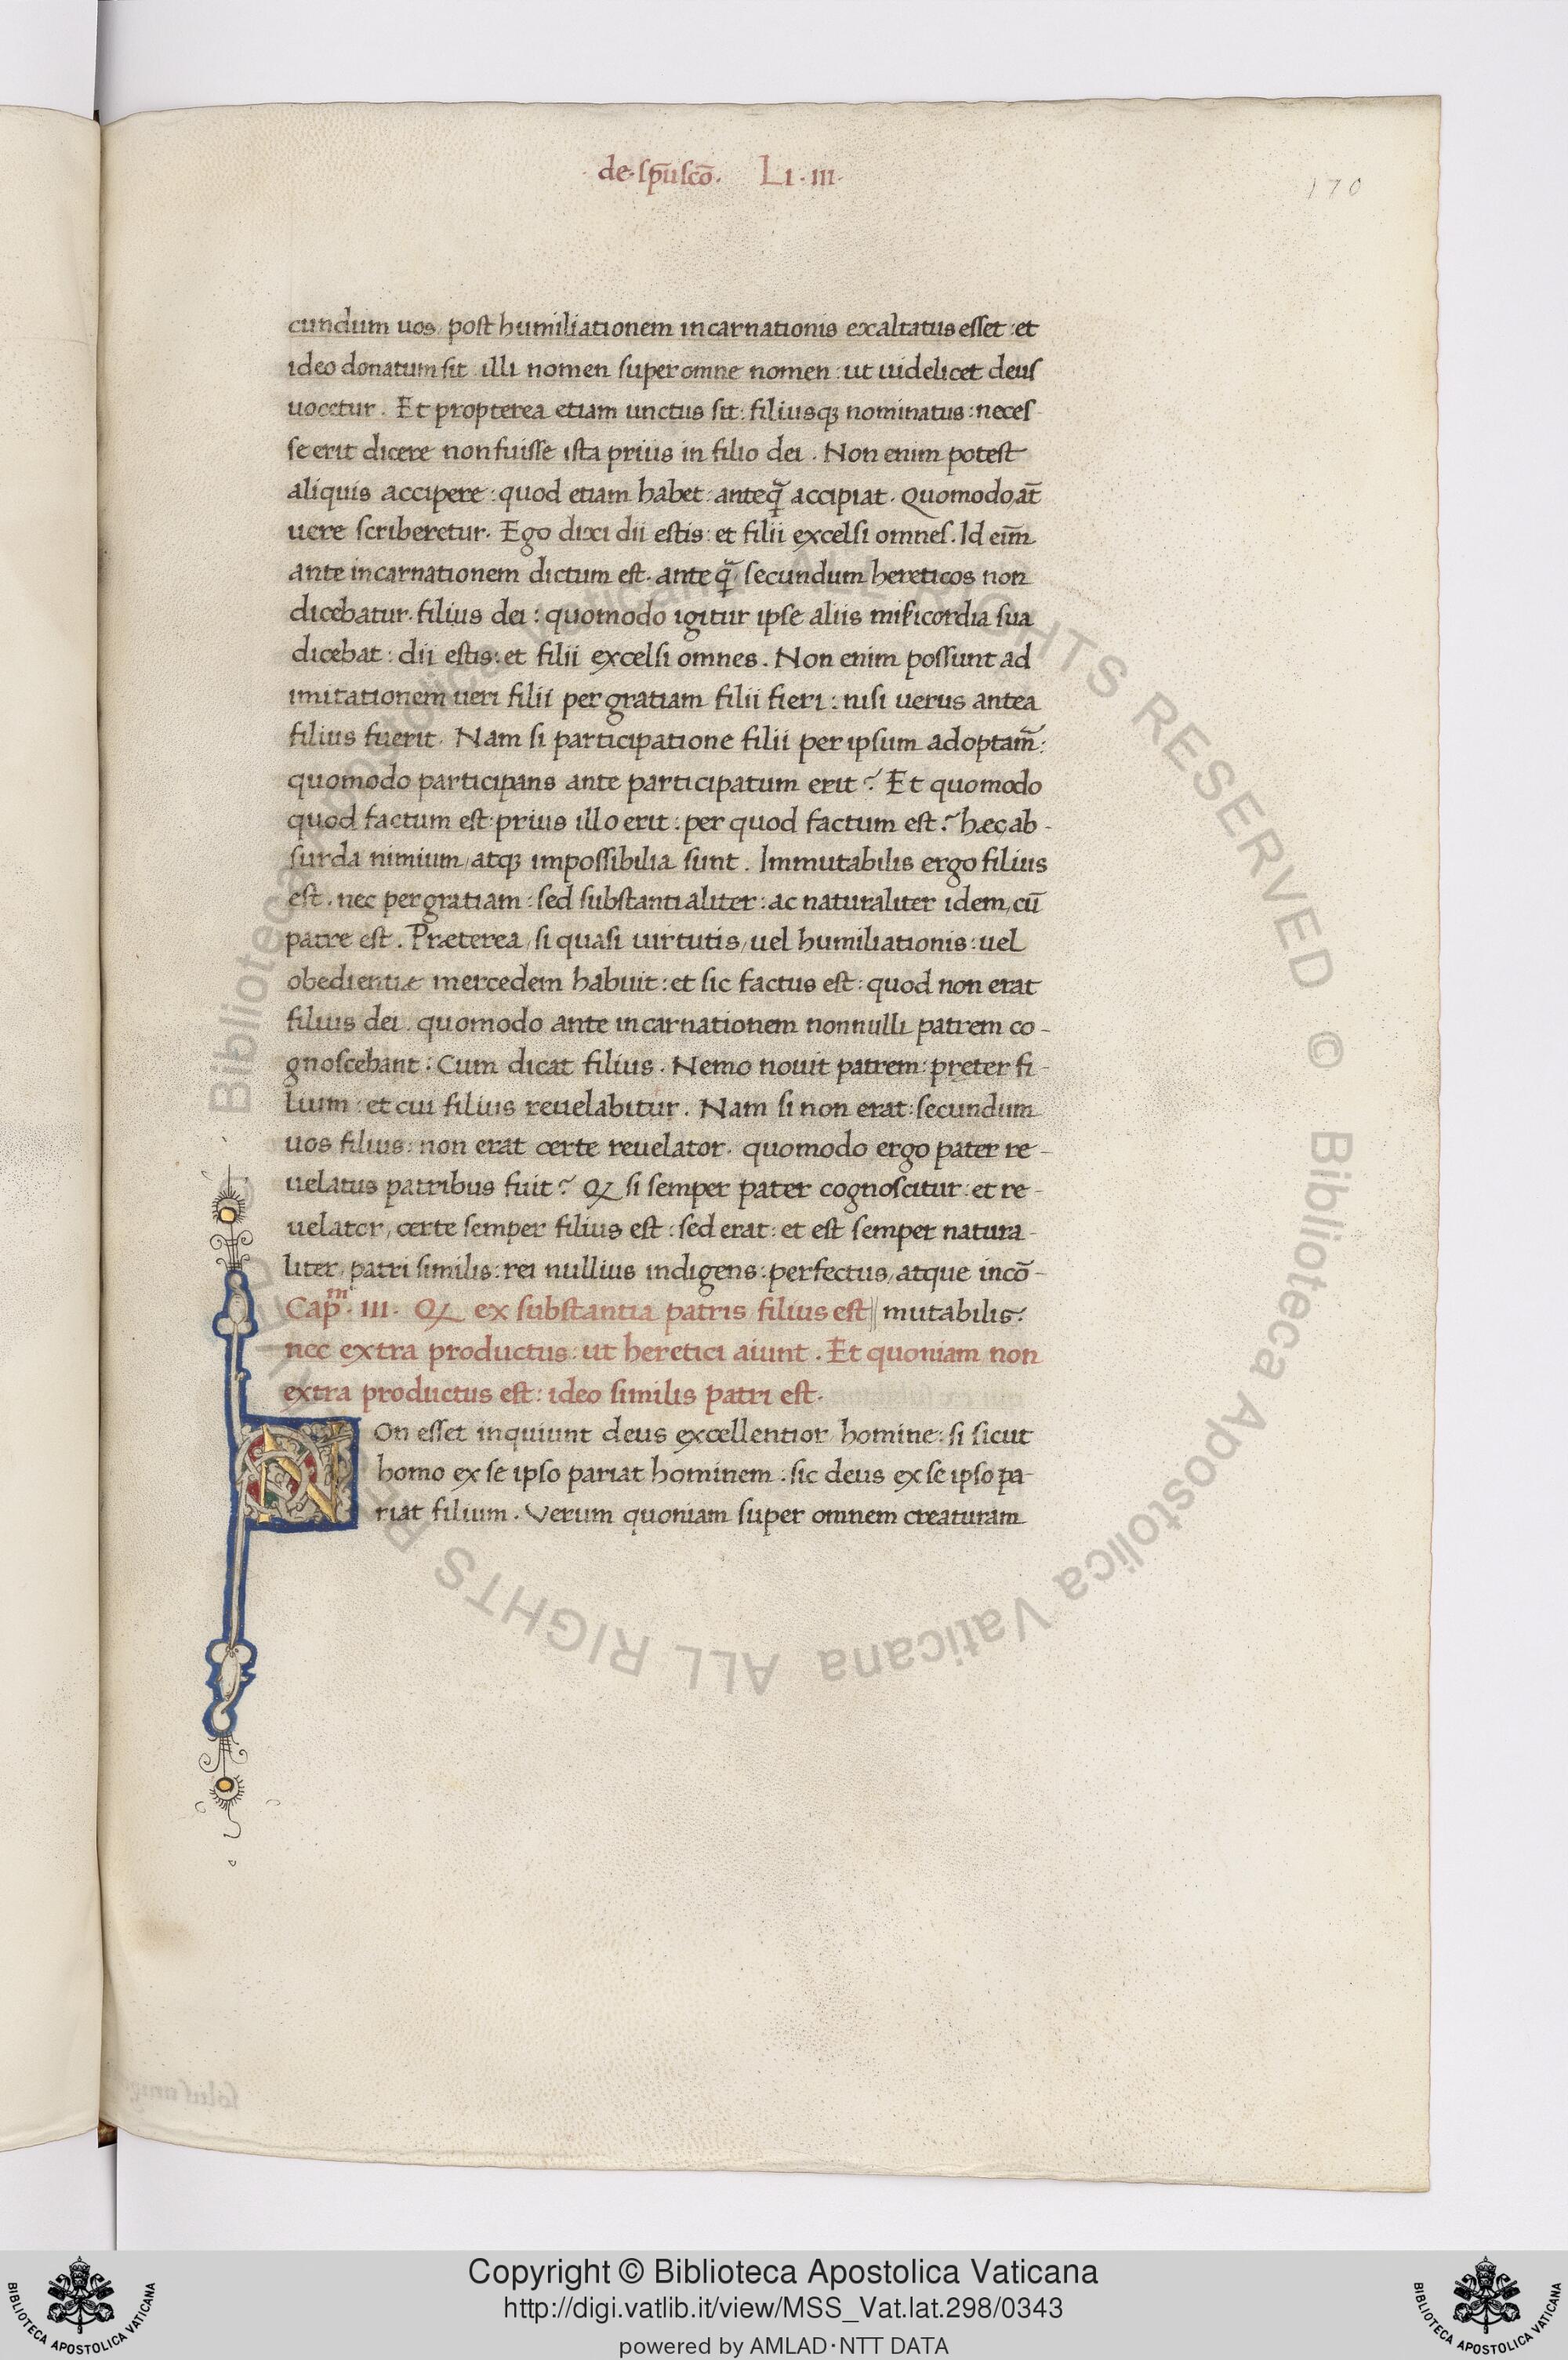 de · sp̄u sc̄o · LI · III ·
170
cundum uos, post humiliationem incarnationis exaltatus esset : et
ideo donatum sit illi nomen super omne nomen : ut uidelicet deus
uocetur . Et propterea etiam unctus sit : filiusqꝫ nominatus : neces-
se erit dicere non fuisse ista prius in filio dei . Non enim potest
aliquis accipere : quod etiam habet : anteq̃ accipiat . Quomodo, at̄
uere scriberetur . Ego dixi dii estis : et filii excelsi omnes . Id eim̄
ante incarnationem dictum est . ante q̃, secundum hereticos non
dicebatur . filius dei : quomodo igitur ipse aliis mis̄icordia sua
dicebat : dii estis : et filii excelsi omnes . Non enim possunt ad
imitationem ueri filii per gratiam filii fieri : nisi uerus antea
filius fuerit . Nam si participatione filii per ipsum adoptam̄ :
quomodo participans ante participatum erit ? Et quomodo
quod factum est : prius illo erit : per quod factum est ? hæc ab-
surda nimium, atqꝫ impossibilia sunt . Immutabilis ergo filius
est . nec per gratiam : sed substantialiter : ac naturaliter idem, cū
patre est . Præterea, si quasi uirtutis, uel humiliationis : uel
obedientiæ mercedem habuit : et sic factus est : quod non erat
filius dei . quomodo ante incarnationem nonnulli patrem co-
gnoscebant : Cum dicat filius . Nemo nouit patrem : pręter fi-
lium : et cui filius reuelabitur . Nam si non erat : secundum
uos filius : non erat certe reuelator . quomodo ergo pater re-
uelatus patribus fuit ? Qꝫ si semper pater cognoscitur : et re-
uelator, certe semper filius est : sed erat : et est semper natura-
liter, patri similis : rei nullius indigens : perfectus, atque incō-
Capᵐ · III · Qꝫ ex substantia patris filius est || mutabilis :
nec extra productus : ut heretici aiunt . Et quoniam non
extra productus est : ideo similis patri est .
NOn esset inquiunt deus excellentior homine : si sicut
homo ex se ipso pariat hominem : sic deus ex se ipso pa-
riat filium . Verum quoniam super omnem creaturam
Biblioteca Apostolica Vaticana ALL RIGHTS RESERVED © Biblioteca Apostolica Vaticana ALL RIGHTS RESERVED ©
Copyright © Biblioteca Apostolica Vaticana
http://digi.vatlib.it/view/MSS_Vat.lat.298/0343
powered by AMLAD·NTT DATA
BIBLIOTECA APOSTOLICA VATICANA
BIBLIOTECA APOSTOLICA VATICANA